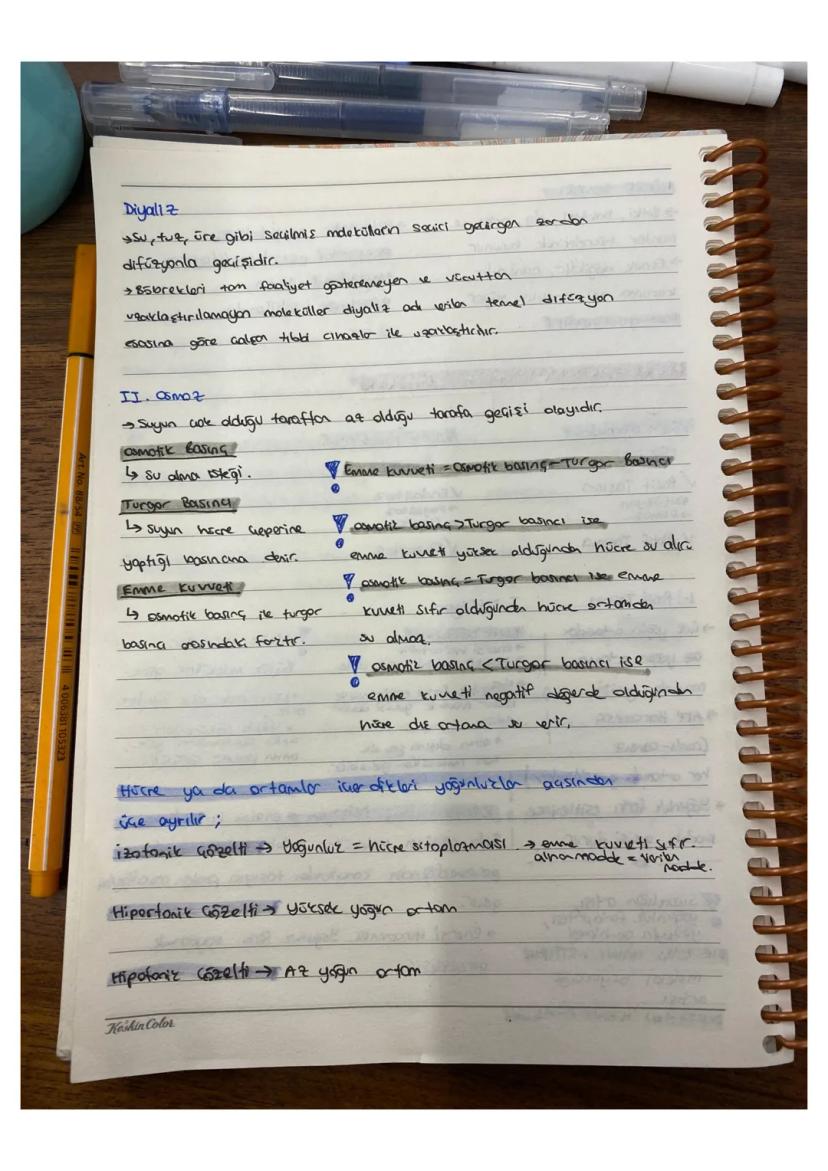 Diyaliz
→ Su, tuz, üre gibi seçilmiş moleküllerin seçici geçirgen zardan
difüzyonla geçişidir.
→ Böbrekleri tam faaliyet gösteremeyen ve vücuttan
uzaklaştırılamayan moleküller diyaliz adı verilen temel difüzyon
esasına göre çalışan tıbbi cihazlar ile uzaklaştırılır.
II. Osmoz
→ Suyun çok olduğu taraftan az olduğu tarafa geçişi olayıdır.
Osmotik Basınç
↳ Su alma isteği.
Turgor Basıncı
↳ Suyun hücre çeperine
yaptığı basıncına denir.
Emme Kuvveti
↳ Osmotik basınç ile turgor
basıncı arasındaki farktır.
! Emme kuvveti = Osmotik basınç - Turgor Basıncı
! osmotik basınç > Turgor basıncı ise
emme kuvveti yüksek olduğundan hücre su alır.
! osmotik basınç = Turgor basıncı ise emme
kuvveti sıfır olduğundan hücre ortamdan
su almaz.
! osmotik basınç < Turgor basıncı ise
emme kuvveti negatif değerde olduğundan
hücre dış ortama su verir.
Hücre ya da ortamlar içerdikleri yoğunluklar açısından
üçe ayrılır ;
İzotonik Çözelti → Yoğunluk = hücre sitoplazması → emme kuvveti sıfır.
alınan madde = verilen
madde.
Hipertonik Çözelti → Yüksek yoğun ortam
Hipotonik Çözelti → Az yoğun ortam
Keskin Color
Art. No. 88/54
4 006381 105323